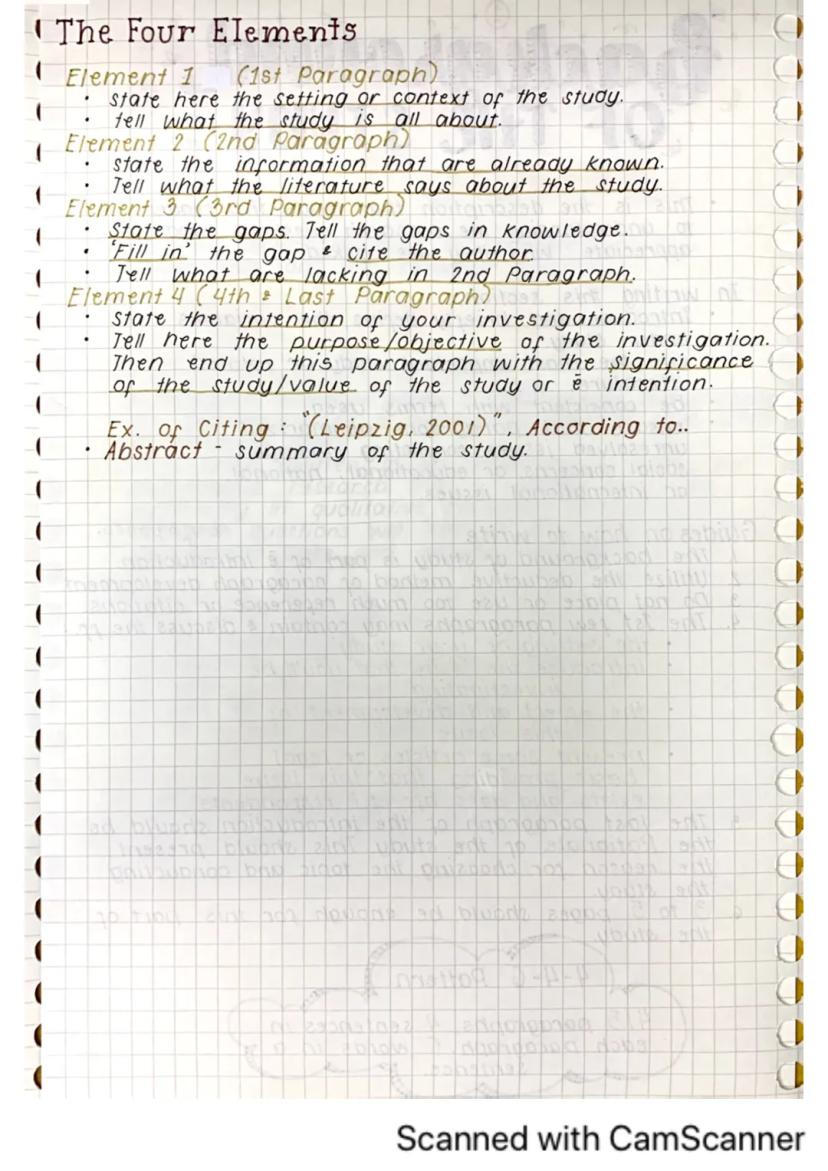 The Four Elements
Element 1 (1st Paragraph)
• state here the setting or context of the study.
• tell what the study is all about.
Element 2 (2nd Paragraph)
• state the information that are already known.
• Tell what the literature says about the study.
Element 3 (3rd Paragraph)
• State the gaps. Tell the gaps in knowledge.
• 'Fill in' the gap & cite the author.
• Tell what are lacking in 2nd Paragraph.
Element 4 (4th & Last Paragraph)
• State the intention of your investigation.
• Tell here the purpose/objective of the investigation.
Then end up this paragraph with the significance
of the study/value of the study or ē intention.
Ex. of Citing : "(Leipzig, 2001)", According to..
• Abstract - summary of the study.
Scanned with CamScanner